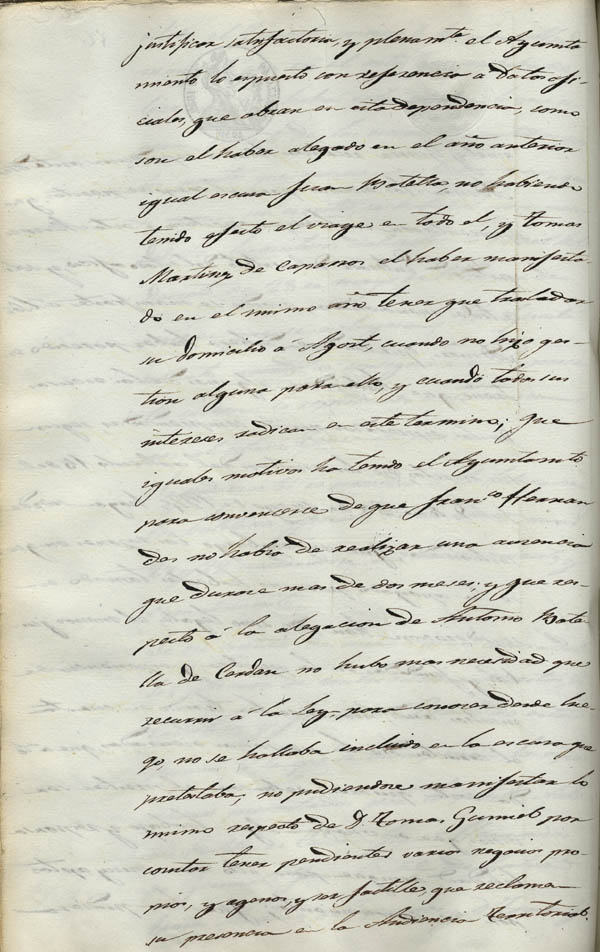 justificar satisfactoria, y plenamte. el Ayunta
miento lo espuesto con referencia a datos ofi-
ciales, que obran en esta dependencia, como
son el haber alegado en el año anterior
igual escusa Juan Botella, no habiendo
tenido efecto el viage en todo el, y Tomas
Martinz de Caparros el haber manifesta-
do en el mismo año tener que trasladar
su domicilio á Agost, cuando no hizo ges-
tion alguna para ello, y cuando todos sus
intereses radican en este termino; que
iguales motivos ha tenido el Ayuntamto.
para convencerse de que Franco. Hernan
des no habia de realizar una ausencia
que durase mas de dos meses; y que res-
pecto á la alegacion de Antonio Bote-
lla de Cerdan no hubo mas necesidad que
recurrir á la ley para conocer desde lue-
go, no se hallaba incluido en la escusa que
pretestaba, no pudiendose manifestar lo
mismo respecto de D Tomas Gumiel por
constar tener pendientes varios negocios pro-
pios, y agenos, y ser factible que reclame
su presencia en la Audiencia Territorial.